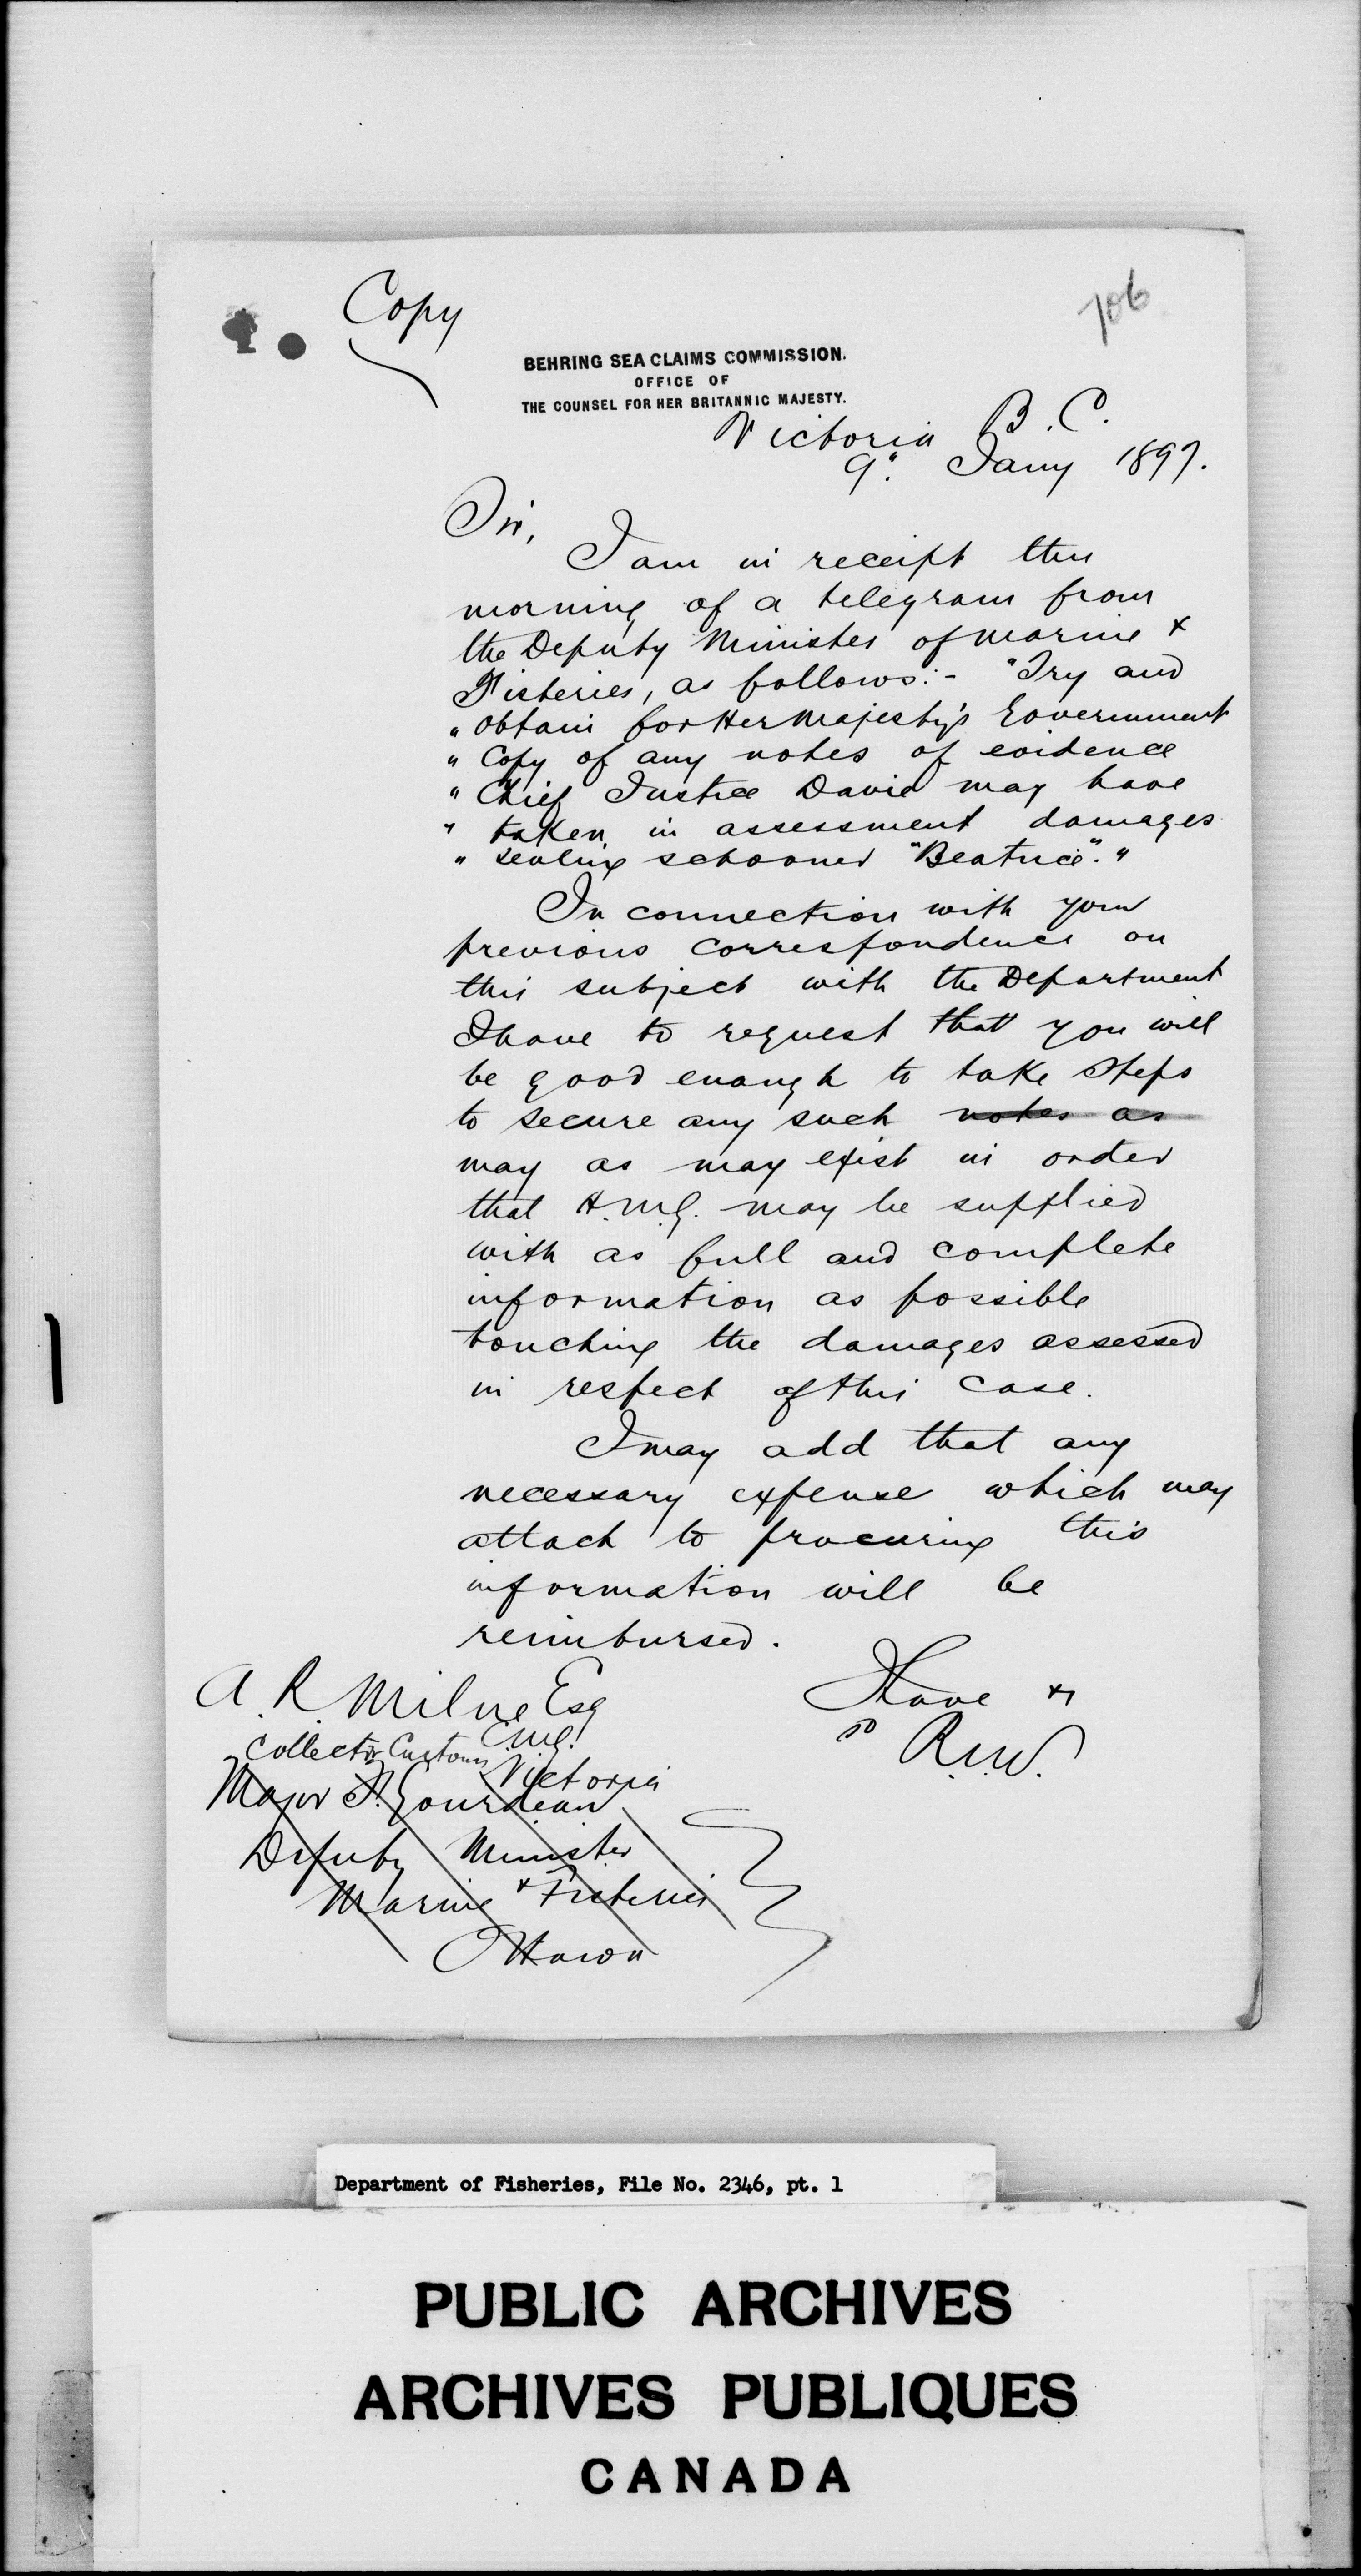 Copy
706
BEHRING SEA CLAIMS COMMISSION.
OFFICE OF
THE COUNSEL FOR HER BRITANNIC MAJESTY.
Victoria B.C.
9". Jany 1897.
Sir,
I am in receipt this
morning of a telegram from
the Deputy Minister of Marine &
Fisheries, as follows:- "Try and
" obtain for Her Majesty's Government
" Copy of any notes of evidence
" Chief Justice Davie may have
" taken in assessment damages
" sealing schooner "Beatrice"."
In connection with your
previous correspondence on
this subject with the Department
I have to request that you will
be good enough to take steps
to secure any such notes as
may as may exist in order
that H.M.G. may be supplied
with as full and complete
information as possible
touching the damages assessed
in respect of this case.
I may add that any
necessary expense which may
attach to procuring this
information will be
reimbursed.
I have &
R.N.V.
A. R. Milne Esq
C.M.G.
Collector Customs
Victoria
Major F. Gourdeau
Deputy Minister
Marine & Fisheries
Ottawa
Department of Fisheries, File No. 2346, pt. 1
PUBLIC ARCHIVES
ARCHIVES PUBLIQUES
CANADA